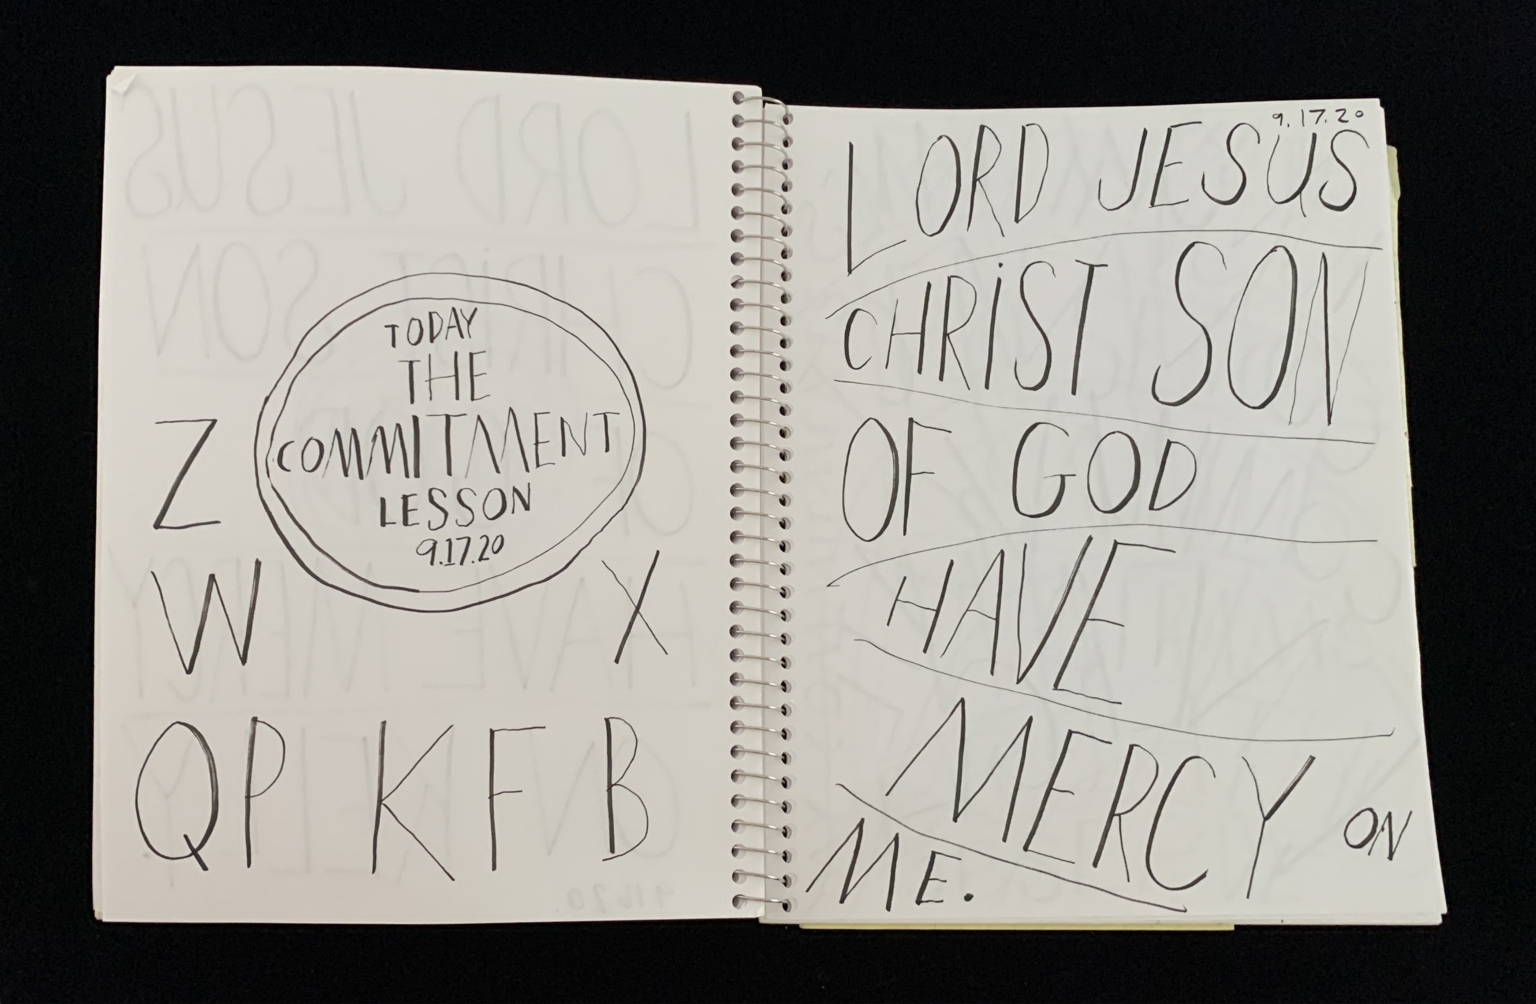 TODAY
THE
COMMITMENT
LESSON
9.17.20
Z
W X
Q P K F B
9.17.20
LORD JESUS
CHRiST SON
OF GOD
HAVE
MERCY ON
ME.